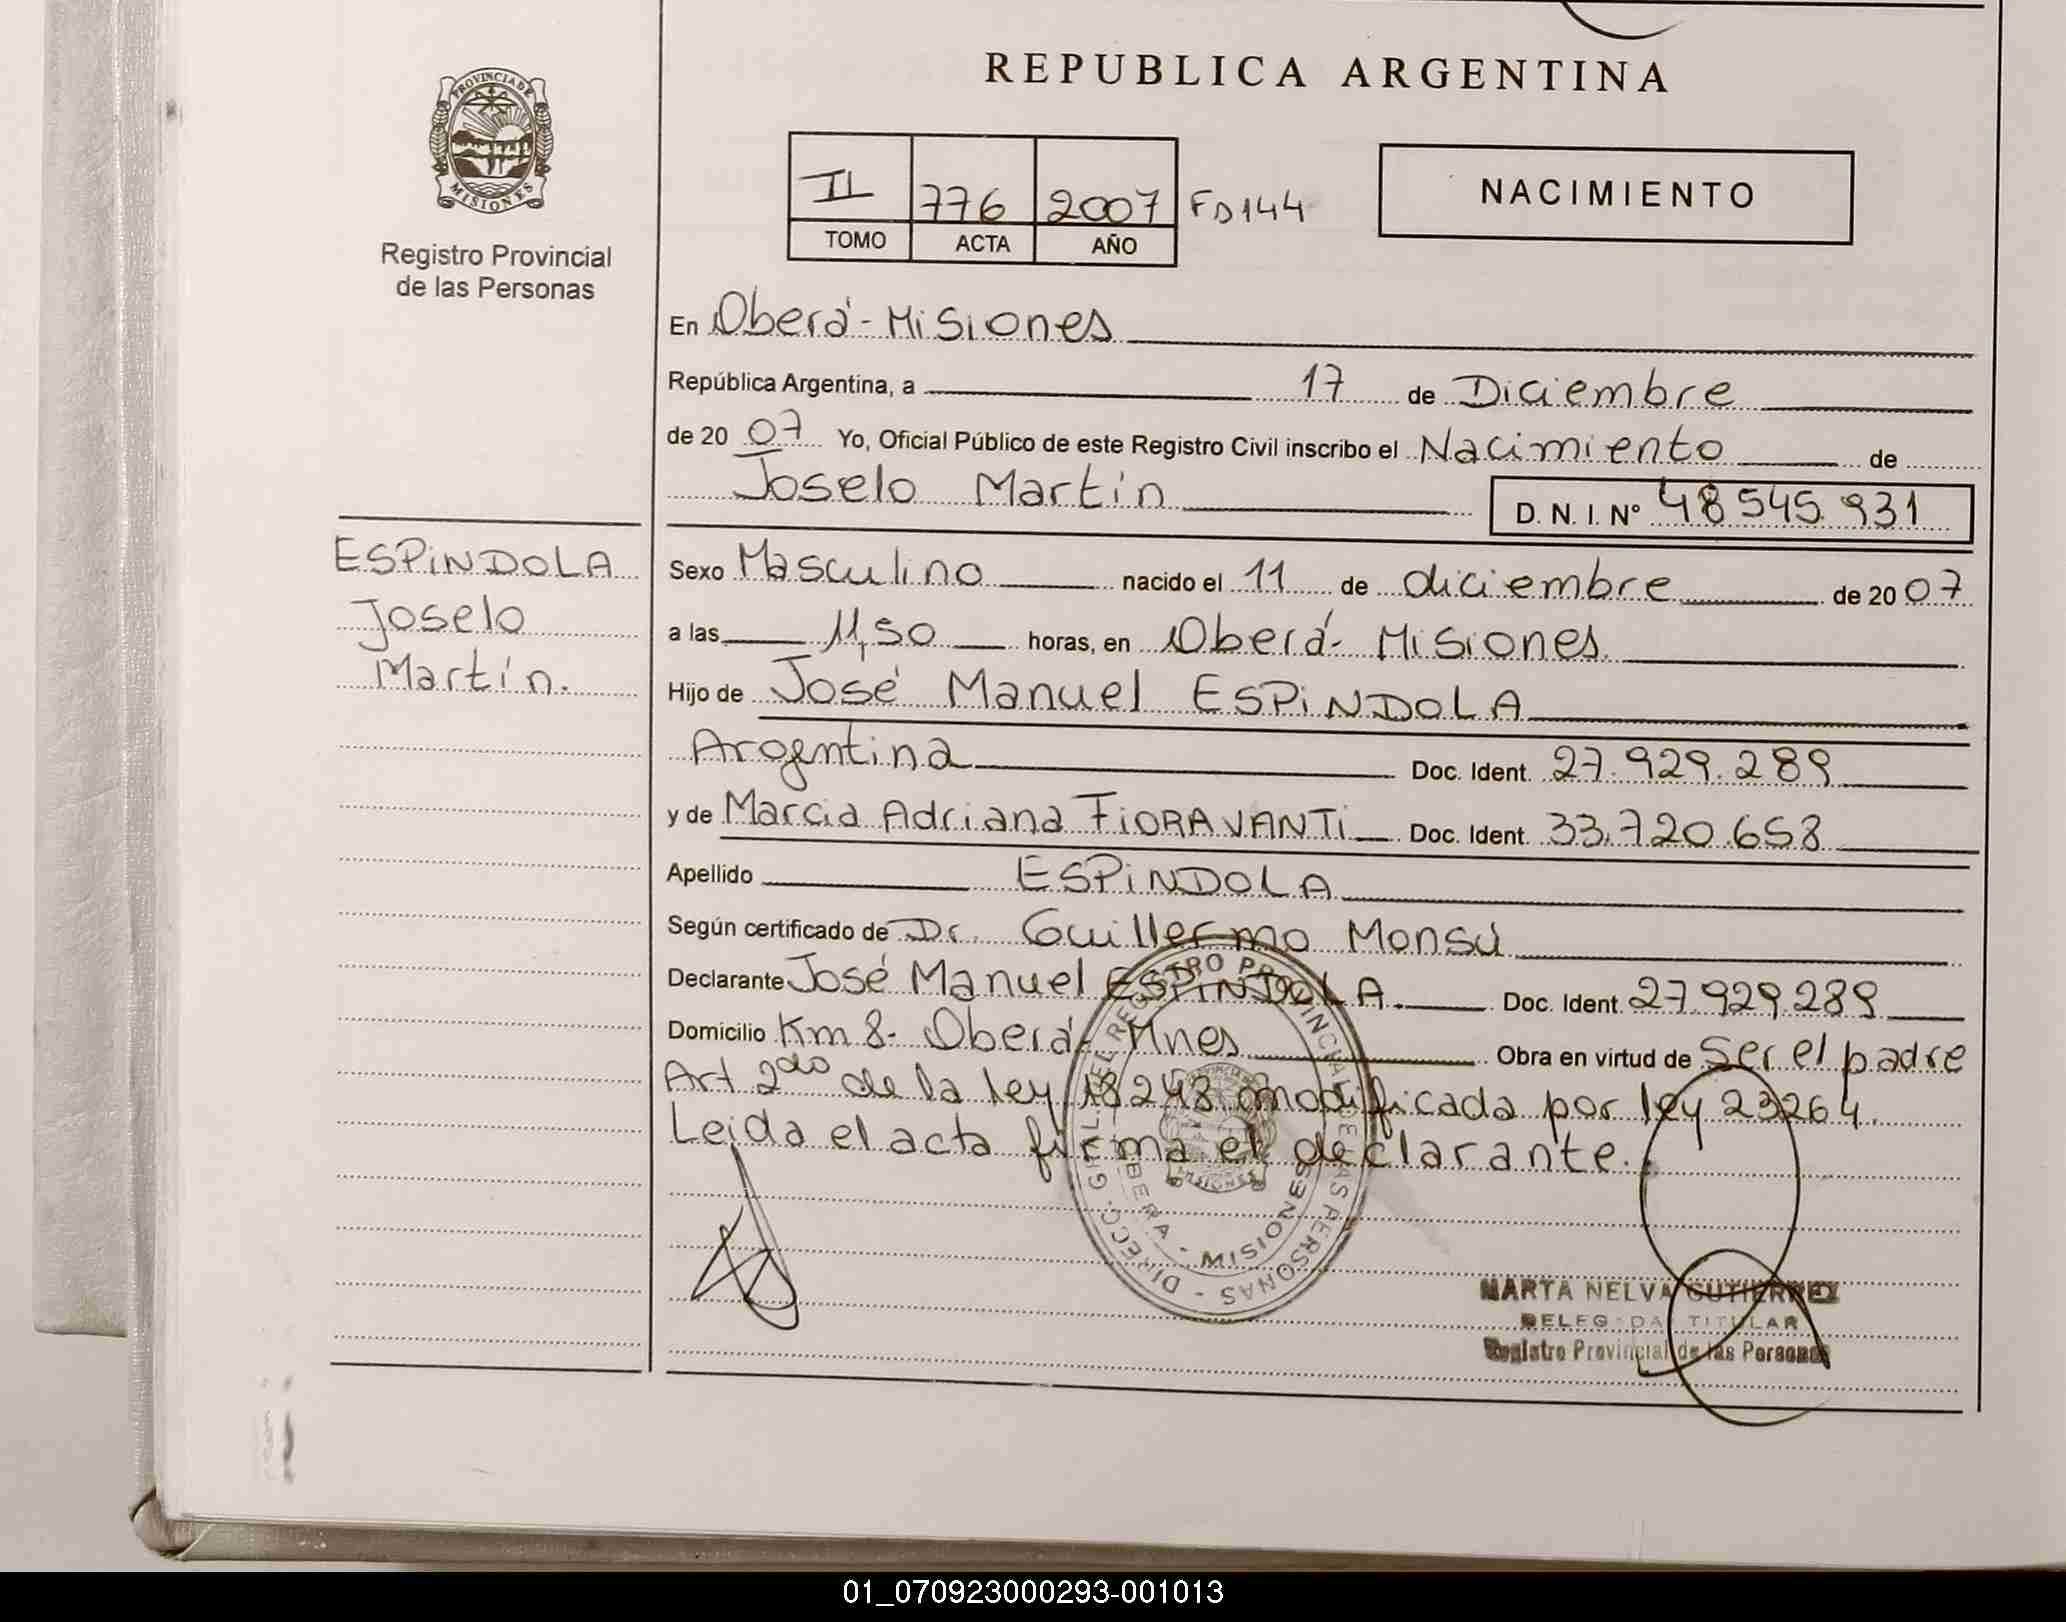 REPUBLICA ARGENTINA
PROVINCIA DE MISIONES
Registro Provincial
de las Personas
II 776 2007 FD 144
TOMO ACTA AÑO
NACIMIENTO
En Oberá - Misiones
República Argentina, a 17 de Diciembre
de 20 07 Yo, Oficial Público de este Registro Civil inscribo el Nacimiento de
Joselo Martín D. N. I. Nº 48 545 931
ESPINDOLA
Joselo
Martín.
Sexo Masculino nacido el 11 de diciembre de 20 07
a las 11,50 horas, en Oberá - Misiones
Hijo de José Manuel ESPINDOLA
Argentina Doc. Ident. 27.929.289
y de Marcia Adriana FIORAVANTI Doc. Ident. 33.720.658
Apellido ESPINDOLA
Según certificado de Dr. Guillermo Monsú
Declarante José Manuel ESPINDOLA. Doc. Ident. 27.929.289
Domicilio Km 8 - Oberá - Mnes Obra en virtud de Ser el padre
Art 2do de la ley 18248 modificada por ley 23264.
Leida el acta firma el declarante.
DIRECC. GRAL. DEL REGISTRO PROVINCIAL DE LAS PERSONAS -
OBERA - MISIONES
MARTA NELVA GUTIERREZ
DELEGADA TITULAR
Registro Provincial de las Personas
01_070923000293-001013